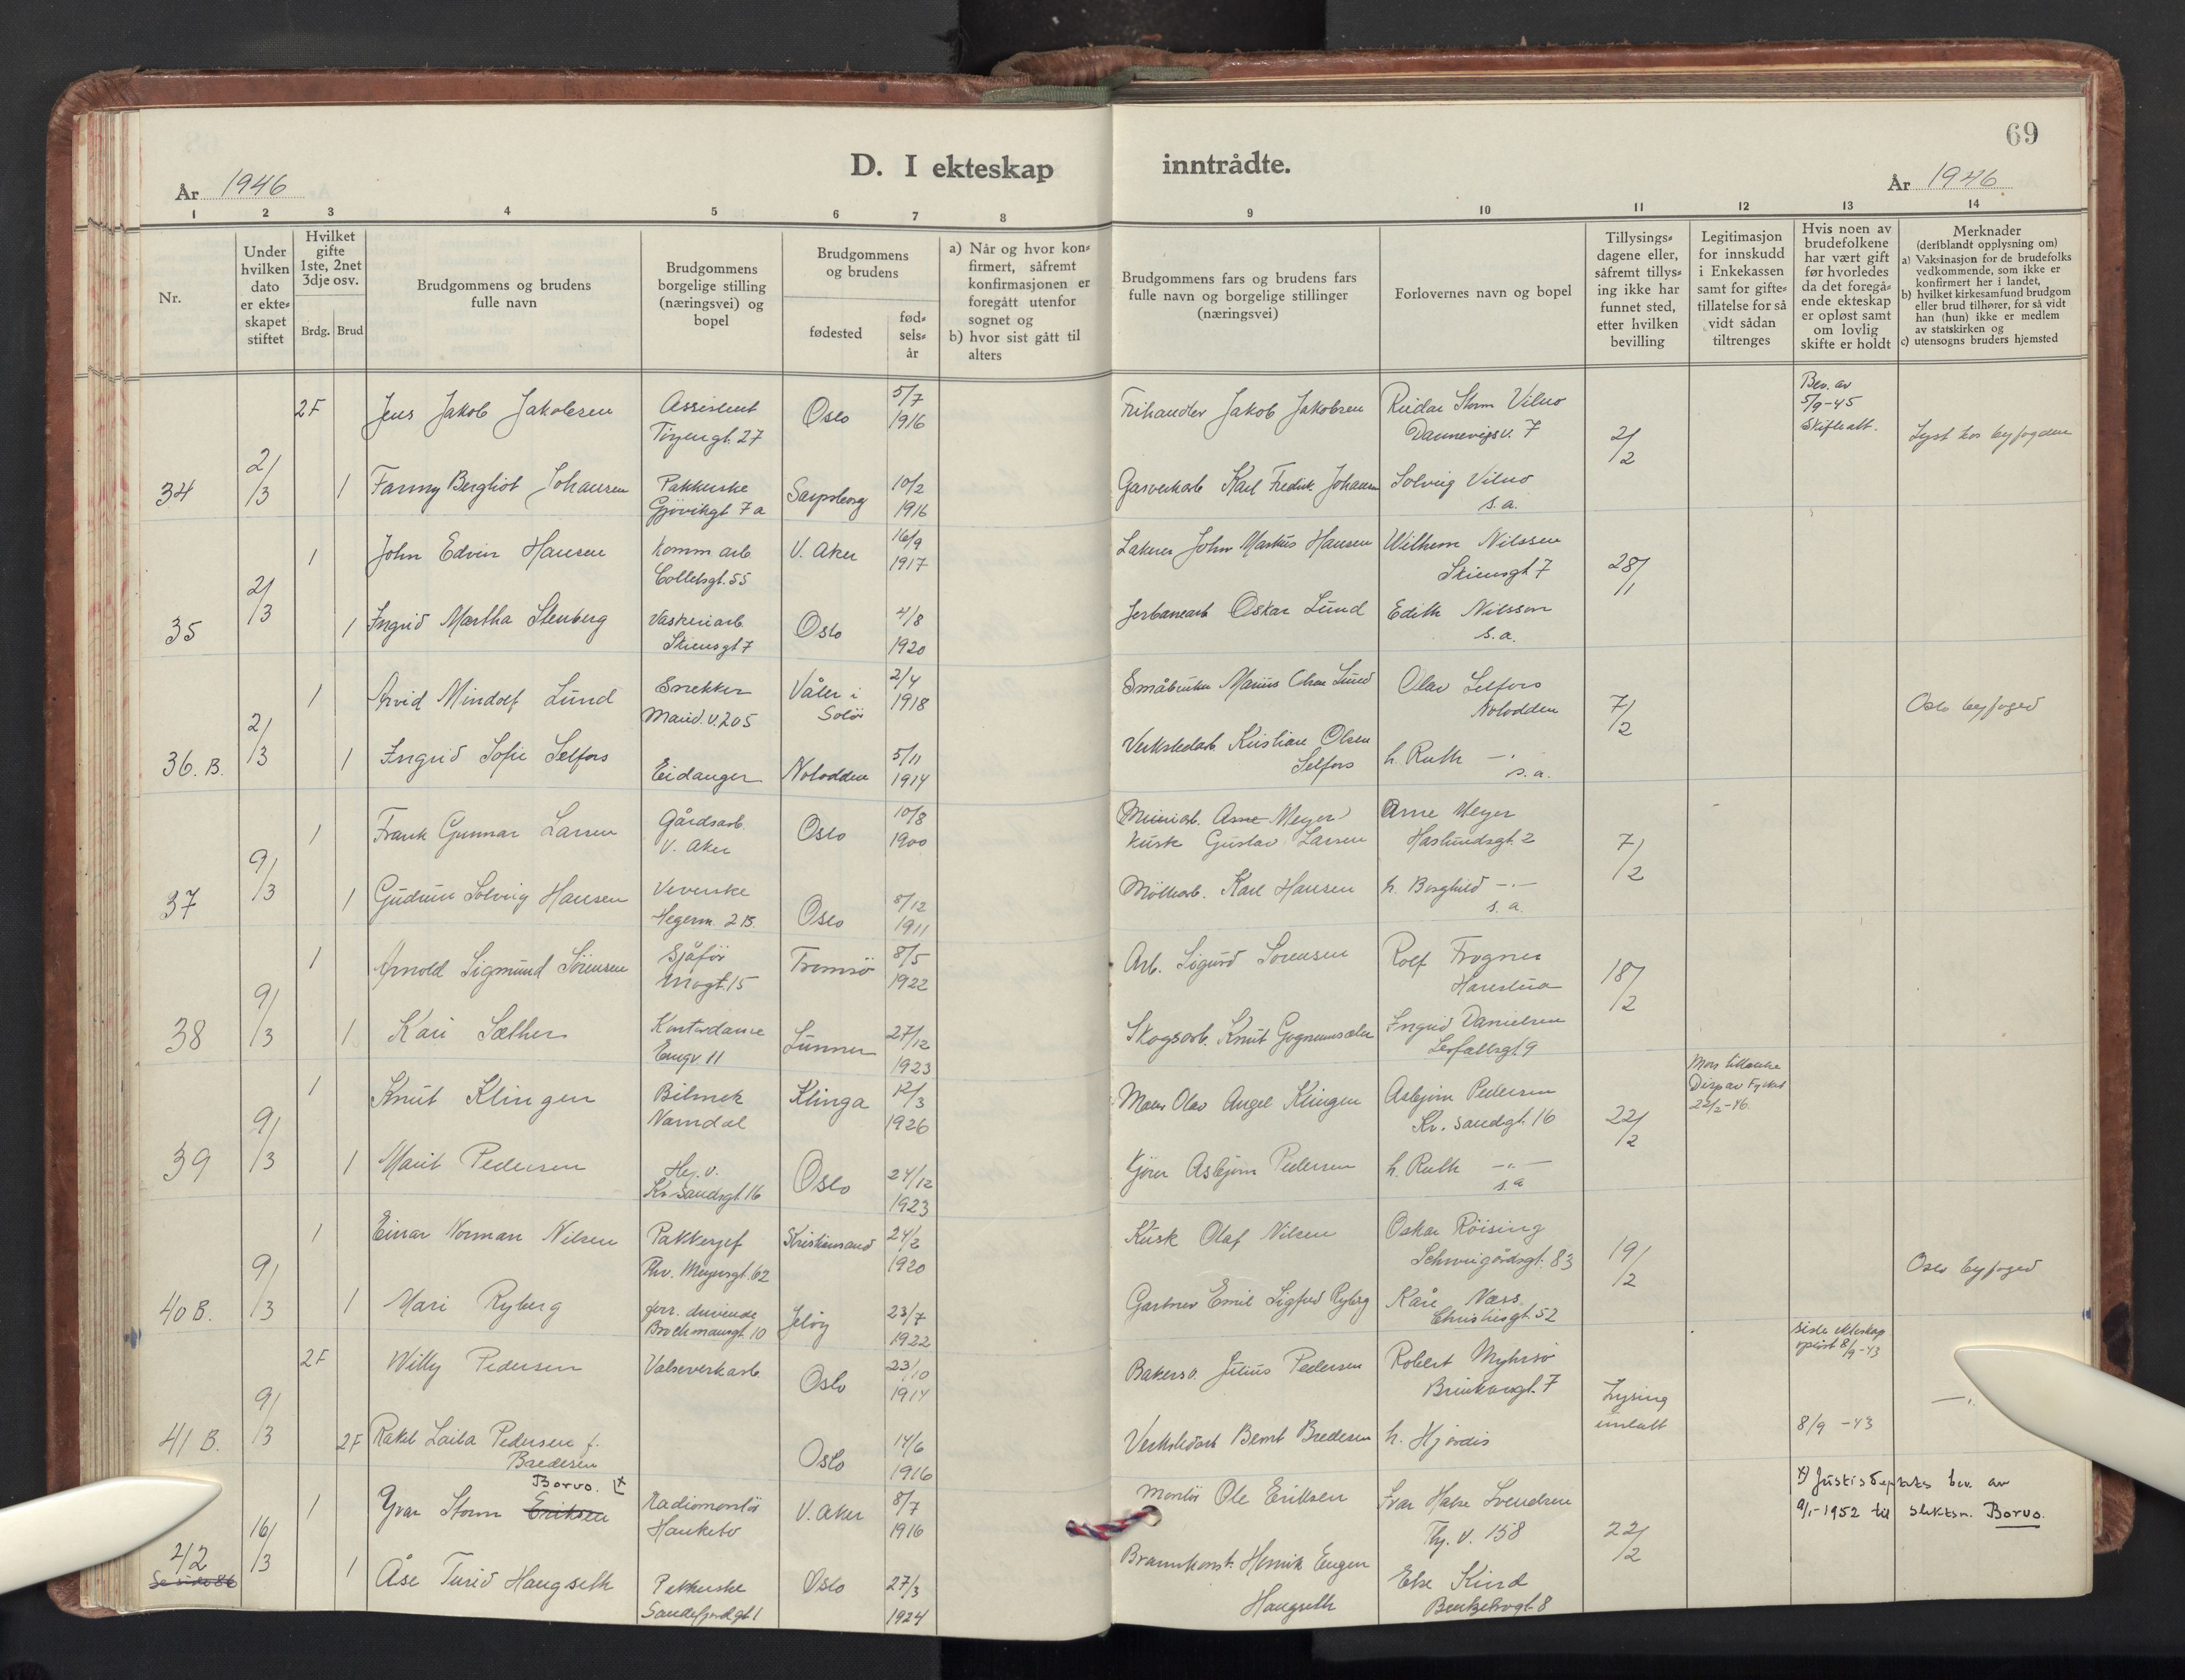 69
D. I ekteskap inntrådte.
År 1946
År 1946
1 2 3 4 5 6 7 8 9 10 11 12 13 14
Nr.
Under hvilken dato er ekteskapet stiftet
Hvilket gifte 1ste, 2net 3dje osv.
Brdg. Brud
Brudgommens og brudens fulle navn
Brudgommens borgelige stilling (næringsvei) og bopel
Brudgommens og brudens
fødested
fødselsår
a) Når og hvor konfirmert, såfremt konfirmasjonen er foregått utenfor sognet og
b) hvor sist gått til alters
Brudgommens fars og brudens fars fulle navn og borgelige stillinger (næringsvei)
Forlovernes navn og bopel
Tillysingsdagene eller, såfremt tillysing ikke har funnet sted, etter hvilken bevilling
Legitimasjon for innskudd i Enkekassen samt for giftetillatelse for så vidt sådan tiltrenges
Hvis noen av brudefolkene har vært gift før hvorledes da det foregående ekteskap er opløst samt om lovlig skifte er holdt
Merknader
(deriblandt opplysning om)
a) Vaksinasjon for de brudefolks vedkommende, som ikke er konfirmert her i landet,
b) hvilket kirkesamfund brudgom eller brud tilhører, for så vidt han (hun) ikke er medlem av statskirken og
c) utensogns bruders hjemsted
2F Jens Jakob Jakobsen Assistent Oslo 5/7 Frihandler Jakob Jakobsen Reidar Storm Vilno Bev. av
Tøyengt. 27 1916 Dannevigsv. 7 2/2 5/9-45
Skifte att. Lyst hos byfogden
34 2/3 1 Fanny Bergliot Johansen Pakkerske Sarpsborg 10/2 Gasverkarb Karl Fredrik Johansen Solveig Vilno
Gjøvikgt 7a 1916 s.a.
1 John Edvin Hansen Komm arb. V. Aker 16/9 John Markus Hansen Wilhem Nilssen
Colletsgt. 55 1917 Skiensgt 7 28/1
35 2/3 1 Ingrid Martha Stenberg Vaskeriarb. Oslo 4/8 Jerbanearb Oskar Lund Edith Nilsson
Skiensgt 7 1920 s.a.
1 Arvid Mindolf Lund Snekker Våler i 2/4 Småbruker Marius Olsen Lund Olav Selfors
Marid. v. 205 Solør 1918 Notodden 7/2 Oslo byfoged
36. B. 2/3 1 Ingrid Sofie Selfors Eidanger Notodden 5/11 Verkstedarb. Kristian Olsen h. Ruth —.
1914 Selfors s.a.
1 Frank Gunnar Larsen Gårdsarb. Oslo 10/8 Arne Meyer Arne Meyer
V. Aker 1900 Kusk Gustav Larsen Haslundsgt. 2 7/2
37 9/3 1 Gudrun Solveig Hansen Veverske Oslo 8/12 Møllearb. Karl Hansen h. Borghild —.—
Hegerm. 2 B. 1911 s.a.
1 Arnold Sigmund Sørensen Sjåfør Tromsø 8/5 Arb. Sigurd Sørensen Rolf Frogner
15 1922 Harestua 18/2
38 9/3 1 Kari Sæther Kontordame Lunner 27/12 Skogsarb. Knut Ingrid Danielsen
Engv 11 1923 Lerfallsgt. 9
1 Knut Klingen Bilmek Klinga 12/3 Olav Angel Klingen Asbjørn Pedersen Mors tillatelse
Namdal 1926 Kr. sandgt. 16 22/2 Disp av Fylket
22/2-46.
39 9/3 1 Marit Pedersen Hj. v. Oslo 24/12 Asbjørn Pedersen h. Ruth —.—
Kr sandsgt. 16 1923 s.a
1 Einar Norman Nilsen Pakkersjef Kristiansand 24/2 Kusk Olaf Nilsen Oskar Röising
Thv. Meyersgt. 62 1920 Schweigårdsgt. 83 19/2 Oslo byfoged
40 B. 9/3 1 Mari Ryberg forr. drivende Jeløy 23/7 Gartner Emil Sigfred Ryberg Kåre Næss
Brochmansgt. 10 1922 Christiesgt. 52
2F Willy Pedersen Valseverkarb. Oslo 23/10 Bakersv. Julius Pedersen Robert Myhrsø siste ekteskap
1914 7 Lysing opløst 8/9-43
41 B. 9/3 2F Rakel Laila Pedersen f. Oslo 14/6 Verkstedarb Bernt Bredesen h. Hjørdis unlatt 8/9 -43 —..
Bredesen 1916
Borvo. x
1 Yvar Storm Eriksen Radiomontör V. Aker 8/7 Montör Ole Eriksen Ivar Halse Svendsen x) Justisdeptets bev. av
Hauketo 1916 Thj. v. 158 22/2 9/1-1952 til slektsn. Borvo.
42 16/3 1 Åse Turid Haugseth Pakkerske Oslo 27/3 Brannkonst. Henrik Eugen Else Kind
Se side 86 Sandefjordgt. 1 1924 Haugseth 8